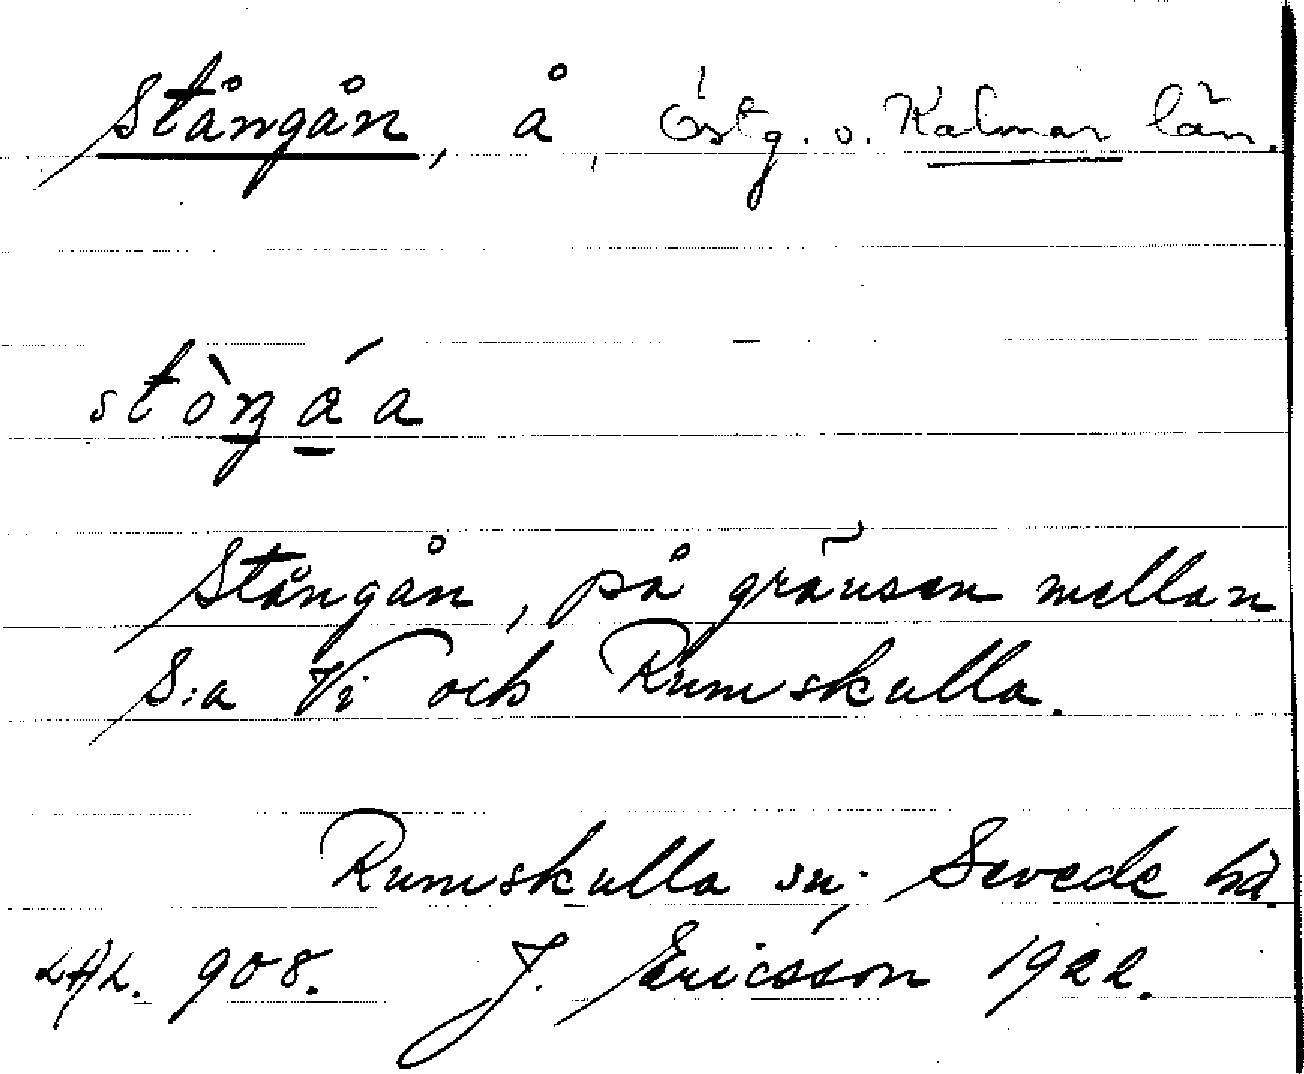 Stångån, å, Östg. o. Kalmar län.
stòŋáa
Stångån, på gränsen mellan
S:a Vi och Rumskulla.
Rumskulla sn; Sevede hd.
908. J. Ericsson 1922.